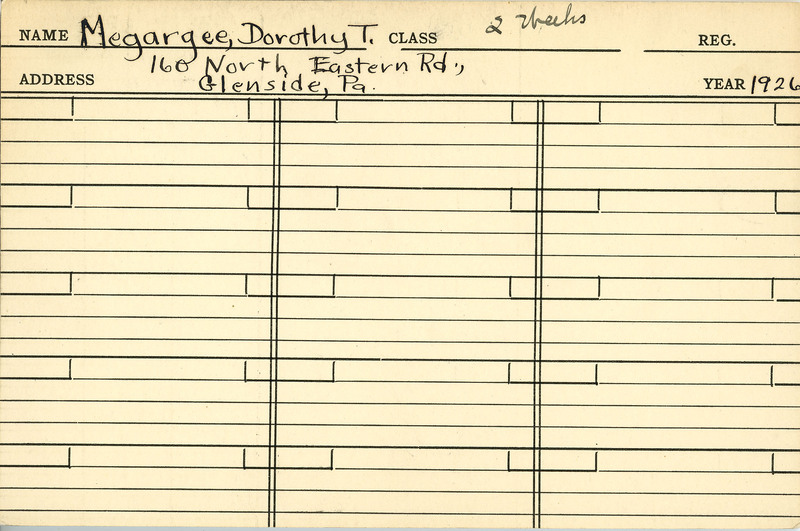 NAME Megargee, Dorothy T. CLASS 2 Weeks REG.
160 North Eastern Rd.,
ADDRESS Glenside, Pa. YEAR 1926